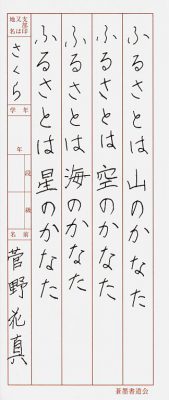 ふるさとは山のかなた
ふるさとは空のかなた
ふるさとは海のかなた
ふるさとは星のかなた
支部印又は地名
さくら
学年
年
段 級
名前
菅野 真
蒼墨書道会